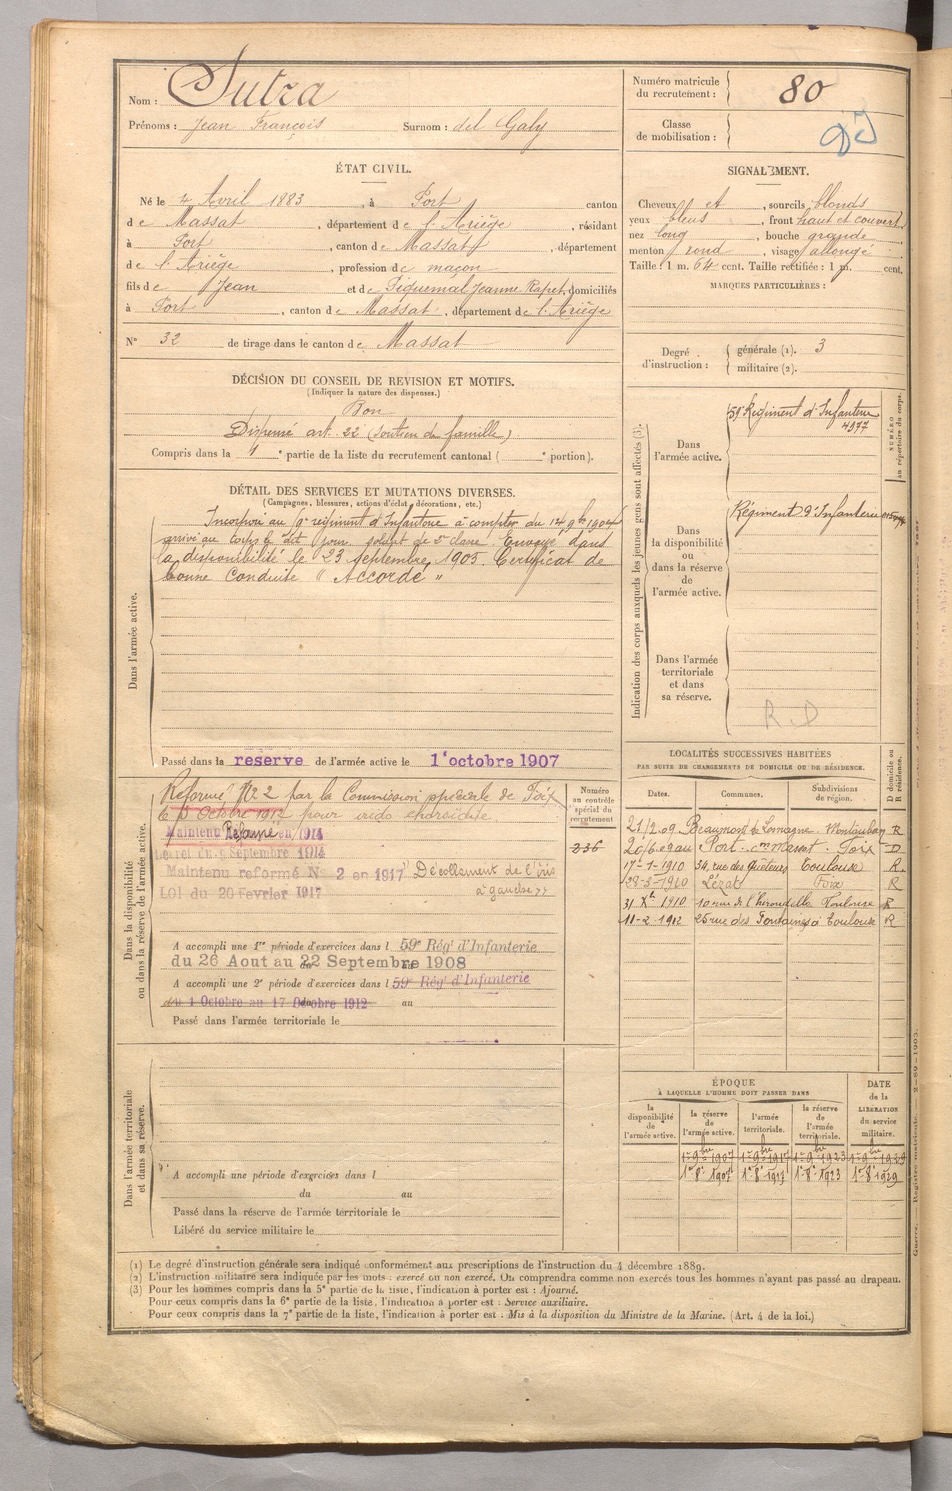 Nom : Sutra
Prénoms : Jean François Surnom : del Galy
Numéro matricule du recrutement : 80
Classe de mobilisation :
ÉTAT CIVIL.
Né le 4 Avril 1883, à Port canton
de Massat, département de l'Ariège, résidant
à Port, canton de Massat, département
de l'Ariège, profession de maçon
fils de Jean et de Piquemal Jeanne Rapet, domiciliés
à Port, canton de Massat, département de l'Ariège
N° 32 de tirage dans le canton de Massat
SIGNALEMENT.
Cheveux et, sourcils blonds
yeux bleus, front haut et couvert
nez long, bouche grande
menton rond, visage allongé
Taille : 1 m. 64 cent. Taille rectifiée : 1 m. cent.
MARQUES PARTICULIÈRES :
Degré d'instruction : générale (1). 3
militaire (2).
DÉCISION DU CONSEIL DE REVISION ET MOTIFS.
(Indiquer la nature des dispenses.)
Bon
Dispensé art. 22 (soutien de famille)
Compris dans la 1e partie de la liste du recrutement cantonal ( e portion).
DÉTAIL DES SERVICES ET MUTATIONS DIVERSES.
(Campagnes, blessures, actions d'éclat, décorations, etc.)
Dans l'armée active.
Incorporé au 9e régiment d'Infanterie à compter du 14 9bre 1904
arrivé au corps le dit jour soldat de 2e classe. Envoyé dans
la disponibilité le 23 septembre 1905. Certificat de
bonne conduite " Accordé "
Passé dans la réserve de l'armée active le 1er octobre 1907
Indication des corps auxquels les jeunes gens sont affectés (3).
NUMÉRO au répertoire du corps.
Dans l'armée active.
59e Régiment d'Infanterie
4977
Dans la disponibilité ou dans la réserve de l'armée active.
Régiment d'Infanterie
Dans l'armée territoriale et dans sa réserve.
R D
Dans la disponibilité ou dans la réserve de l'armée active.
Réformé N° 2 par la Commission spéciale de Foix
le 8 Octobre 1912 pour irido choroïdite.
Maintenu Réformé en 1914
Décret du 9 Septembre 1914
Maintenu reformé N° 2 en 1917 "Décollement de l'iris
Loi du 20 Fevrier 1917 à gauche"
Numéro au contrôle spécial du recrutement
236
A accompli une 1re période d'exercices dans l 59e Régt d'Infanterie
du 26 Aout au 22 Septembre 1908
A accompli une 2e période d'exercices dans l 59e Régt d'Infanterie
du 1 Octobre au 17 Octobre 1912 au
Passé dans l'armée territoriale le
LOCALITÉS SUCCESSIVES HABITÉES
PAR SUITE DE CHANGEMENTS DE DOMICILE OU DE RÉSIDENCE.
Dates. Communes. Subdivisions de région. D domicile ou R résidence.
21/2.09 Beaumont de Lomagne. Montauban R
20/6.09 au Port. con Massat. Foix D
17-1-1910 34, rue des Quêteurs Toulouse R.
28-5-1910 Lézat Foix R
31 Xbre 1910 10 rue de l'hirondelle Toulouse R
11-2-1912 25 rue des Fontaines à Toulouse R
Dans l'armée territoriale et dans sa réserve.
A accompli une période d'exercices dans l
du au
Passé dans la réserve de l'armée territoriale le
Libéré du service militaire le
ÉPOQUE
À LAQUELLE L'HOMME DOIT PASSER DANS
la disponibilité de l'armée active. la réserve de l'armée active. l'armée territoriale. la réserve de l'armée territoriale. DATE de la LIBÉRATION du service militaire.
1er 9bre 1907 1er 9bre 1917 1er 9bre 1923 1er 9bre 1929
1er 8e 1907 1er 8e 1917 1er 8e 1923 1er 8e 1929
(1) Le degré d'instruction générale sera indiqué conformément aux prescriptions de l'instruction du 4 décembre 1889.
(2) L'instruction militaire sera indiquée par les mots : exercé ou non exercé. On comprendra comme non exercés tous les hommes n'ayant pas passé au drapeau.
(3) Pour les hommes compris dans la 5e partie de la liste, l'indication à porter est : Ajourné.
Pour ceux compris dans la 6e partie de la liste, l'indication à porter est : Service auxiliaire.
Pour ceux compris dans la 7e partie de la liste, l'indication à porter est : Mis à la disposition du Ministre de la Marine. (Art. 4 de la loi.)